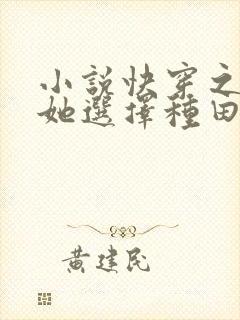 小說快穿之
她選擇種田
黃建民